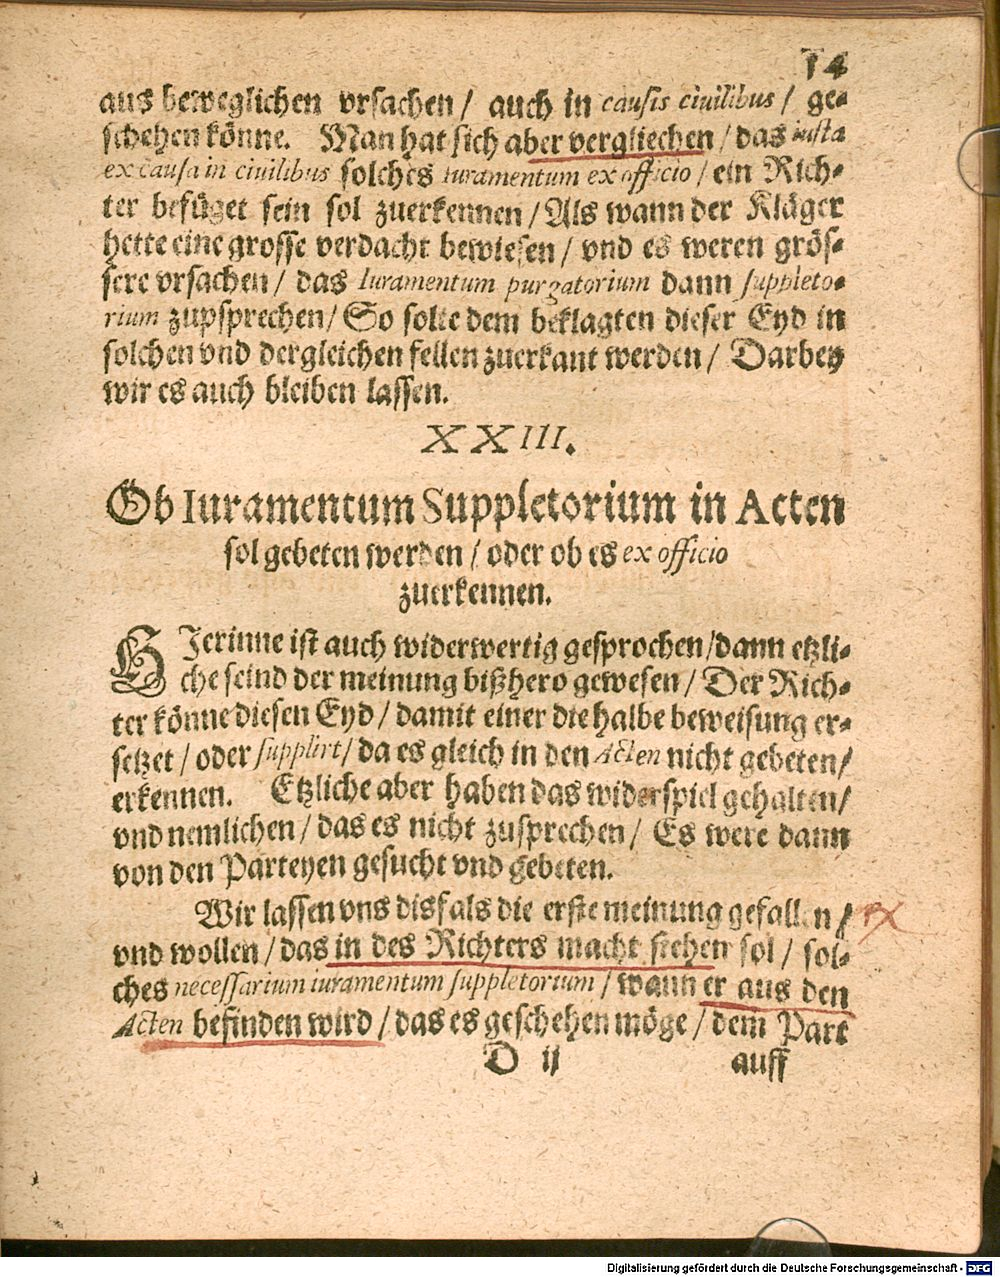 14
aus beweglichen vrsachen / auch in causis ciuilibus / ge-
schehen könne. Man hat sich aber vergliechen / das iusta
ex causa in ciuilibus solches iuramentum ex officio / ein Rich-
ter befüget sein sol zuerkennen / Als wann der Kläger
hette eine grosse verdacht bewiesen / vnd es weren grös-
sere vrsachen / das Iuramentum purgatorium dann suppleto-
rium zupsprechen / So solte dem beklagten dieser Eyd in
solchen vnd dergleichen fellen zuerkant werden / Darbey
wir es auch bleiben lassen.
XXIII.
Ob Iuramentum Suppletorium in Acten
sol gebeten werden / oder ob es ex officio
zuerkennen.
HJerinne ist auch widerwertig gesprochen / dann etzli-
che seind der meinung bißhero gewesen / Der Rich-
ter könne diesen Eyd / damit einer die halbe beweisung er-
setzet / oder supplirt / da es gleich in den Acten nicht gebeten /
erkennen. Etzliche aber haben das widerspiel gehalten /
vnd nemlichen / das es nicht zusprechen / Es were dann
von den Parteyen gesucht vnd gebeten.
Wir lassen vns disfals die erste meinung gefallen /
vnd wollen / das in des Richters macht stehen sol / sol-
ches necessarium iuramentum suppletorium / wann er aus den
Acten befinden wird / das es geschehen möge / dem Part
D ij auff
Digitalisierung gefördert durch die Deutsche Forschungsgemeinschaft - DFG